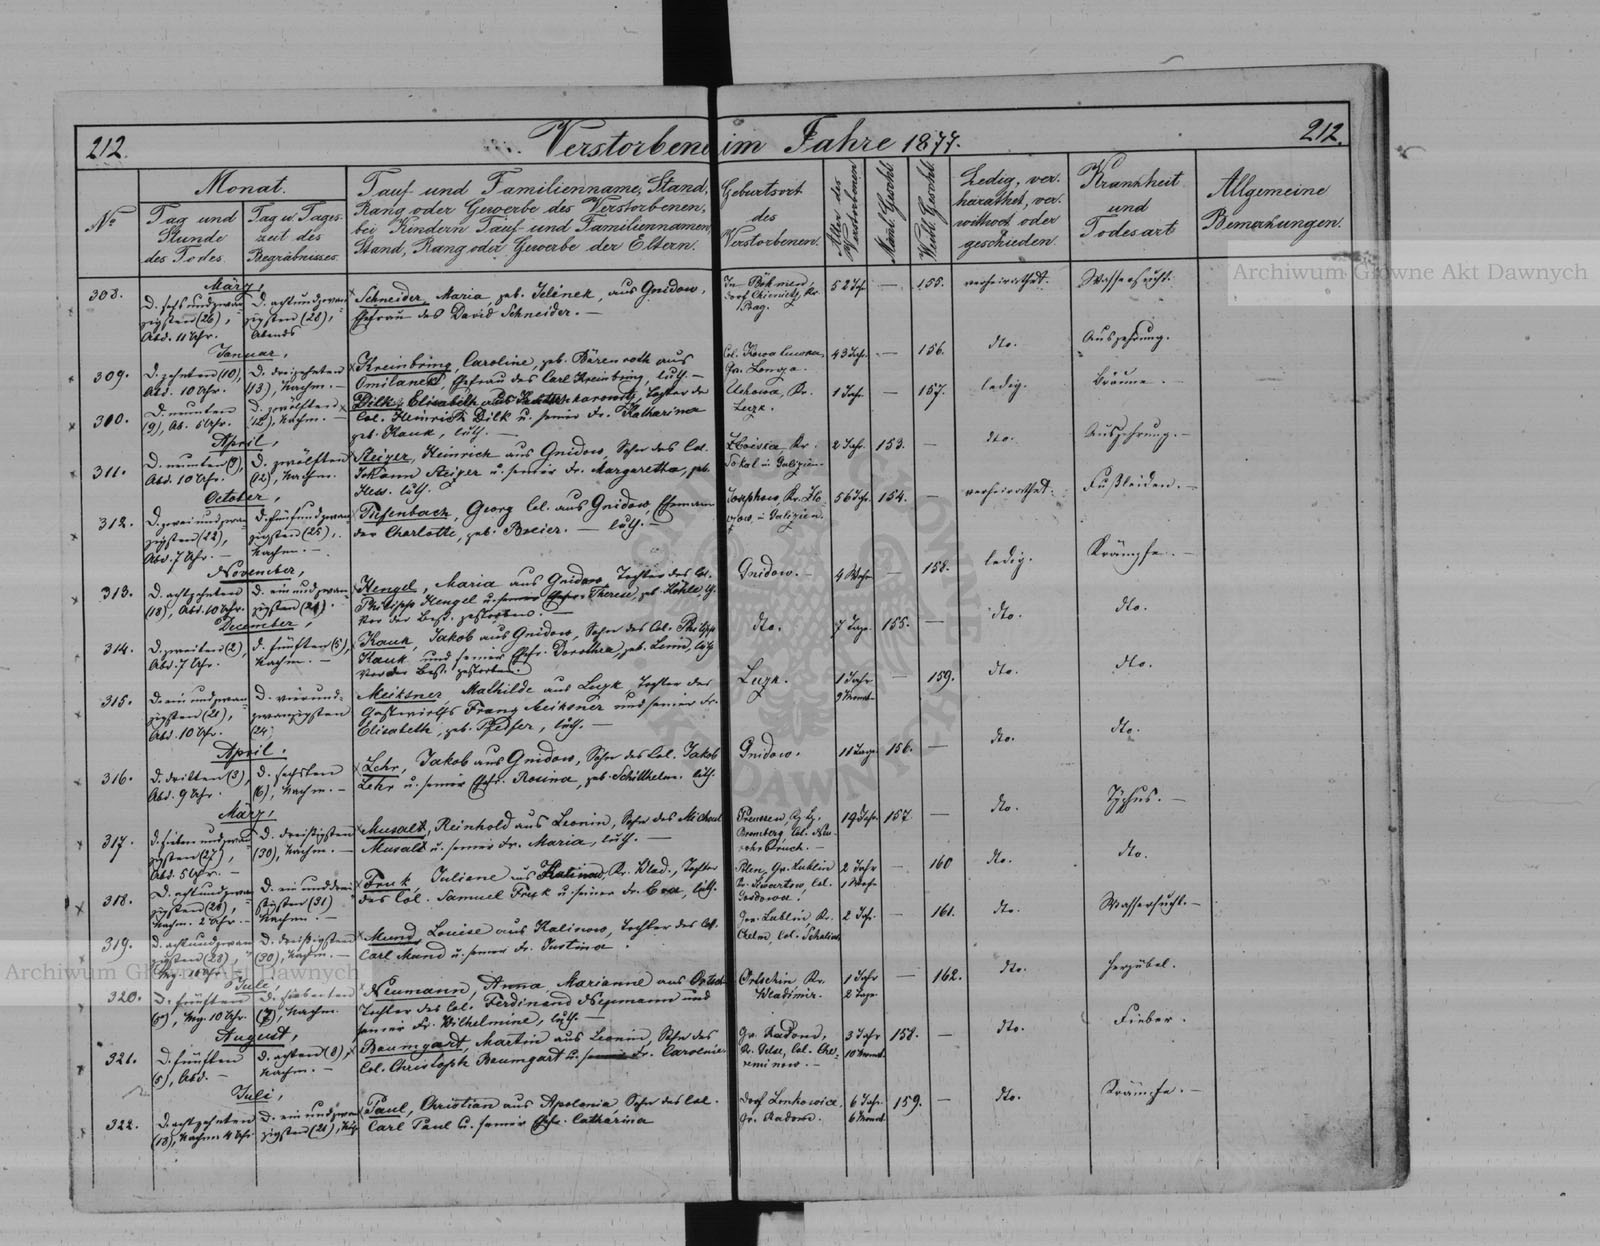 212.
Verstorbene im Jahre 1877.
212.
No
Monat.
Tag und
Stunde
des Todes.
Tag u. Tages-
zeit des
Begräbnisses.
Tauf und Familienname, Stand,
Rang oder Gewerbe des Verstorbenen,
bei Kindern Tauf und Familiennamen
Stand, Rang oder Gewerbe der Eltern.
Geburtsort
des
Verstorbenen.
Alter des
Verstorbenen
Mänl. Geschl.
Weibl. Geschl.
Ledig, ver-
heirathet, ver-
wittwet oder
geschieden.
Krankheit
und
Todesart
Allgemeine
Bemerkungen.
Archiwum Główne Akt Dawnych
308.
März,
D. sechsundzwan-
zigsten (26),
Abd. 11 Uhr.
D. achtundzwan-
zigsten (28),
Abends
Schneider, Maria, geb. Jelinek, aus Gnidow,
Ehefrau des David Schneider. —
In Böhmen,
Prag.
52 Jahr
—
155.
verheirathet.
Wassersucht.
309.
Januar,
D. zehnten (10),
Abd. 10 Uhr.
D. dreizehnten
(13), Nachm. —
Kreinbring, Caroline, geb. Bärenroth aus
Omilanek, Ehefrau des Carl Kreinbring, luth. —
Gv. Lomza.
43 Jahr.
—
156.
dto.
Auszehrung.
310.
D. neunten
(9), Ab. 5 Uhr.
D. zwölften
(12), Nachm. —
Dilk, Elisabeth aus Tochter des
Col. Heinrich Dilk u. seiner Fr. Katharina
geb. Kauk, luth. —
Kr.
Luzk.
1 Jahr.
—
157.
ledig.
Bräune. —
311.
April,
D. neunten (9),
Abd. 10 Uhr.
D. zwölften
(12), Nachm.
Steiger, Heinrich aus Gnidow, Sohn des Col.
Johann Steiger u. seiner Fr. Margaretha, geb.
Hess. luth.
Kr.
Sokal in Galizien.
2 Jahr.
153.
—
dto.
Auszehrung. —
312.
October,
D. zweiundzwan-
zigsten (22),
Abd. 7 Uhr. —
D. fünfundzwan-
zigsten (25),
Nachm. —
Tiefenbach, Georg Col. aus Gnidow, Ehemann
der Charlotte, geb. Breier. — luth. —
Josephow, Kr. Zlo-
czow, in Galizien.
56 Jahr.
154.
—
verheirathet.
Fußleiden. —
313.
November,
D. achtzehnten
(18), Abd. 10 Uhr.
D. einundzwan-
zigsten (21).
Hengel, Maria aus Gnidow, Tochter des Col.
Philipp Hengel u. seiner Ehefr. Therese, geb. Köhle,
Vor der Best. gestorben. —
Gnidow. —
4 Woch.
—
158.
ledig.
Krämpfe. —
314.
December,
D. zweiten (2),
Abd. 7 Uhr.
D. fünften (5),
Nachm. —
Kauk, Jakob aus Gnidow, Sohn des Col. Philipp
Kauk und seiner Ehefr. Dorothea, geb.
Vor der Best. gestorben.
dto.
7 Tage.
155.
—
dto.
dto.
315.
D. einundzwan-
zigsten (21),
Abd. 10 Uhr.
D. vierund-
zwanzigsten
(24)
Meiksner, Mathilde aus Luzk, Tochter des
Gastwirths Franz Meiksner und seiner Fr.
Elisabeth, geb. Pfeifer, luth. —
Luzk.
1 Jahr
9 Monat.
—
159.
dto.
dto.
316.
April,
D. dritten (3),
Abd. 9 Uhr.
D. sechsten
(6), Nachm. —
Lehr, Jakob aus Gnidow, Sohn des Col. Jakob
Lehr u. seiner Ehefr. Rosina, geb. Schillhelm. luth.
Gnidow.
11 Tage.
156.
—
dto.
dto.
317.
März,
D. siebenundzwan-
zigsten (27),
Abd. 5 Uhr. —
D. dreißigsten
(30), Nachm. —
Musalt, Reinhold aus Leonin, Sohn des Michael
Musalt u. seiner Fr. Maria, luth. —
Preussen,
Bromberg,
19 Jahr
157.
—
dto.
Typhus. —
318.
D. achtundzwan-
zigsten (28),
Nachm. 2 Uhr. —
D. einunddrei-
ßigsten (31)
Nachm. —
Fruk, Juliane aus Kalinow, Kr. Wlad., Tochter
des Col. Samuel Fruk u. seiner Fr. Eva, luth.
Polen, Gv. Lublin
2 Jahr
—
160
dto.
dto.
319.
D. achtundzwan-
zigsten (28),
D. dreißigsten
(30), Nachm. —
Mund, Louise aus Kalinow, Tochter des Col.
Carl Mund u. seiner Fr. Justina.
Gv. Lublin, Kr.
Chelm, Col.
2 Jahr.
—
161.
dto.
Wassersucht. —
Archiwum Główne Akt Dawnych
320.
Juli,
D. fünften
(5), Mg. 10 Uhr.
D. siebenten
(7), Nachm.
Neumann, Anna Marianne aus
Tochter des Col. Ferdinand Neumann und
seiner Fr. Wilhelmine, luth. —
Kr.
Wladimir.
1 Jahr
2 Tage.
—
162.
dto.
Herzübel.
321.
August,
D. fünften
(5), Abd. —
D. achten (8),
Nachm. —
Baumgart, Martin aus Leonin, Sohn des
Col. Christoph Baumgart u. seiner Fr. Caroline
Gv. Radom,
3 Jahr
10 Monat.
158.
—
dto.
Fieber.
322.
Juli,
D. achtzehnten
(18), Nachm. 4 Uhr.
D. einundzwan-
zigsten (21),
Paul, Christian aus Apolonia Sohn des Col.
Carl Paul u. seiner Ehefr. Catharina
Dorf Lenkowice,
Gv. Radom.
6 Jahr.
6 Monat.
159.
—
dto.
Krämpfe. —